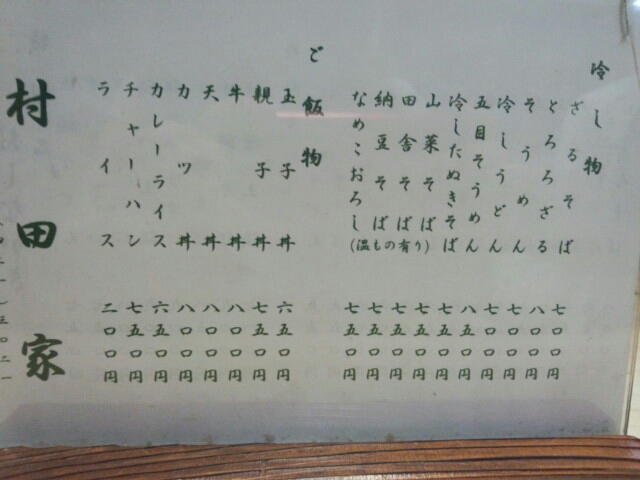 冷し物
ざるそば 七〇〇円
とろろざる 八〇〇円
そうめん 七〇〇円
冷しうどん 七〇〇円
五目そうめん 八五〇円
冷したぬきそば 七五〇円
山菜そば 七五〇円
田舎そば 七五〇円
納豆そば 七五〇円
なめこおろし 七五〇円
(温もの有り)
ご飯物
玉子丼 六五〇円
親子丼 七五〇円
牛丼 八〇〇円
天丼 八〇〇円
カツ丼 八〇〇円
カレーライス 六五〇円
チャーハン 七五〇円
ライス 二〇〇円
村田家